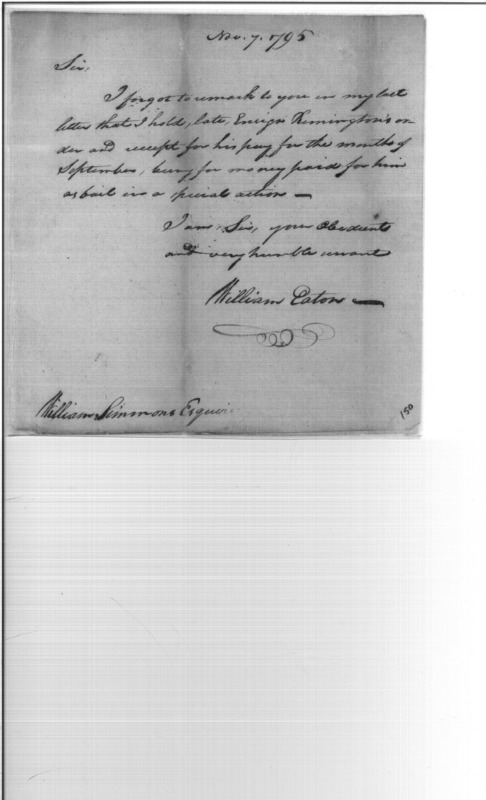 Nov. 7. 1795
Sir,
I forgot to remark to you in my last
letter that I hold, late, Ensign Remington's or
der and receipt for his pay for the months of
September, being for money paid for him
as bail in a special action —
I am, Sir, your Obedient
and very humble servant
William Eaton —
William Simmons Esquire
150